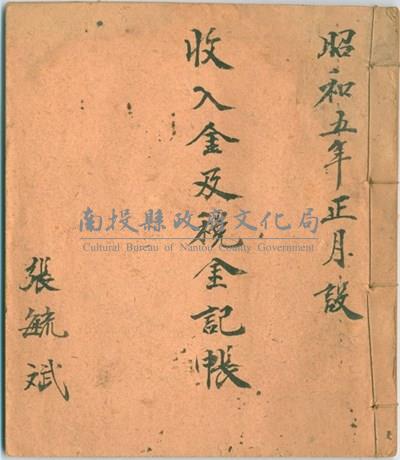 昭和五年正月設
收入金及税金記帳
張毓斌
南投縣政府文化局
Cultural Bureau of Nantou County Government